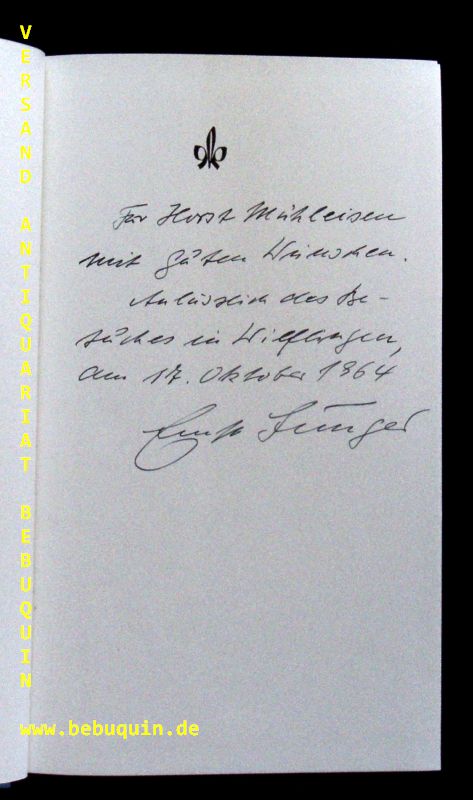 VERSAND ANTIQUARIAT BEBUQUIN
Für Horst Mühleisen
mit guten Wünschen.
Anlässlich des Be-
suches in Wilflingen,
am 17. Oktober 1964
Ernst Jünger
www.bebuquin.de